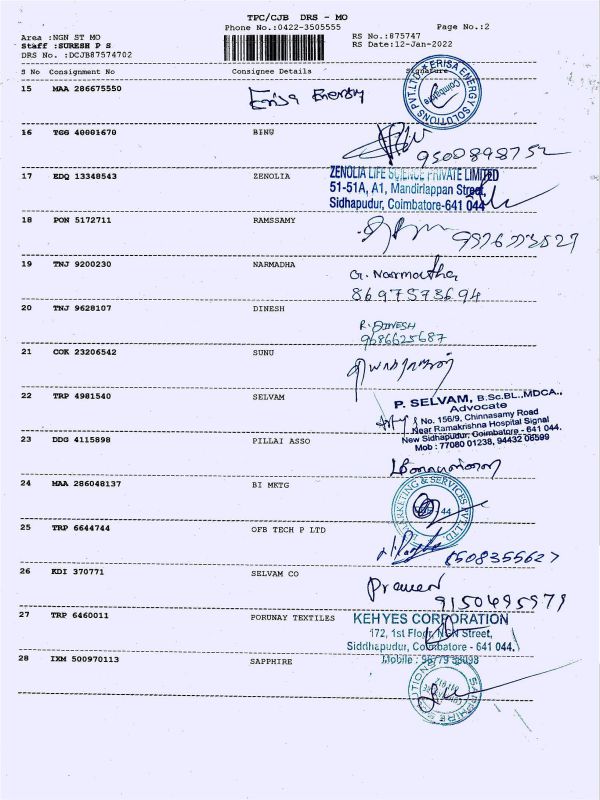 TPC/CJB DRS - MO
Phone No.:0422-3505555
Page No.:2
Area :NGN ST MO
RS No.:875747
Staff :SURESH P S
RS Date:12-Jan-2022
DRS No. :DCJB87574702
S No Consignment No Consignee Details Signature
15 MAA 286675550 Erisa Energy
ERISA ENERGY SOLUTIONS PVT.LTD. Coimbatore
16 TGG 40001670 BINU
9500898752
17 EDQ 13348543 ZENOLIA
ZENOLIA LIFE SCIENCE PRIVATE LIMITED
51-51A, A1, Mandirlappan Street,
Sidhapudur, Coimbatore-641 044
18 PON 5172711 RAMSSAMY
19 TNJ 9200230 NARMADHA
G. Narmatha
8697573694
20 TNJ 9628107 DINESH
R. DINESH
9686625687
21 COK 23206542 SUNU
22 TRP 4981540 SELVAM
P. SELVAM, B.Sc.BL.,MDCA.,
Advocate
No. 156/9, Chinnasamy Road
Near Ramakrishna Hospital Signal
New Sidhapudur, Coimbatore - 641 044.
Mob : 77080 01238, 94432 06599
23 DDG 4115898 PILLAI ASSO
24 MAA 286048137 BI MKTG
MARKETING & SERVICES PVT.LTD.
25 TRP 6644744 OFB TECH P LTD
8508355627
26 KDI 370771 SELVAM CO
Praveen
9150495979
27 TRP 6460011 PORUNAY TEXTILES
KEHYES CORPORATION
172, 1st Floor, NGN Street,
Siddhapudur, Coimbatore - 641 044.
28 IXM 500970113 SAPPHIRE
SAPPHIRE SOLUTIONS